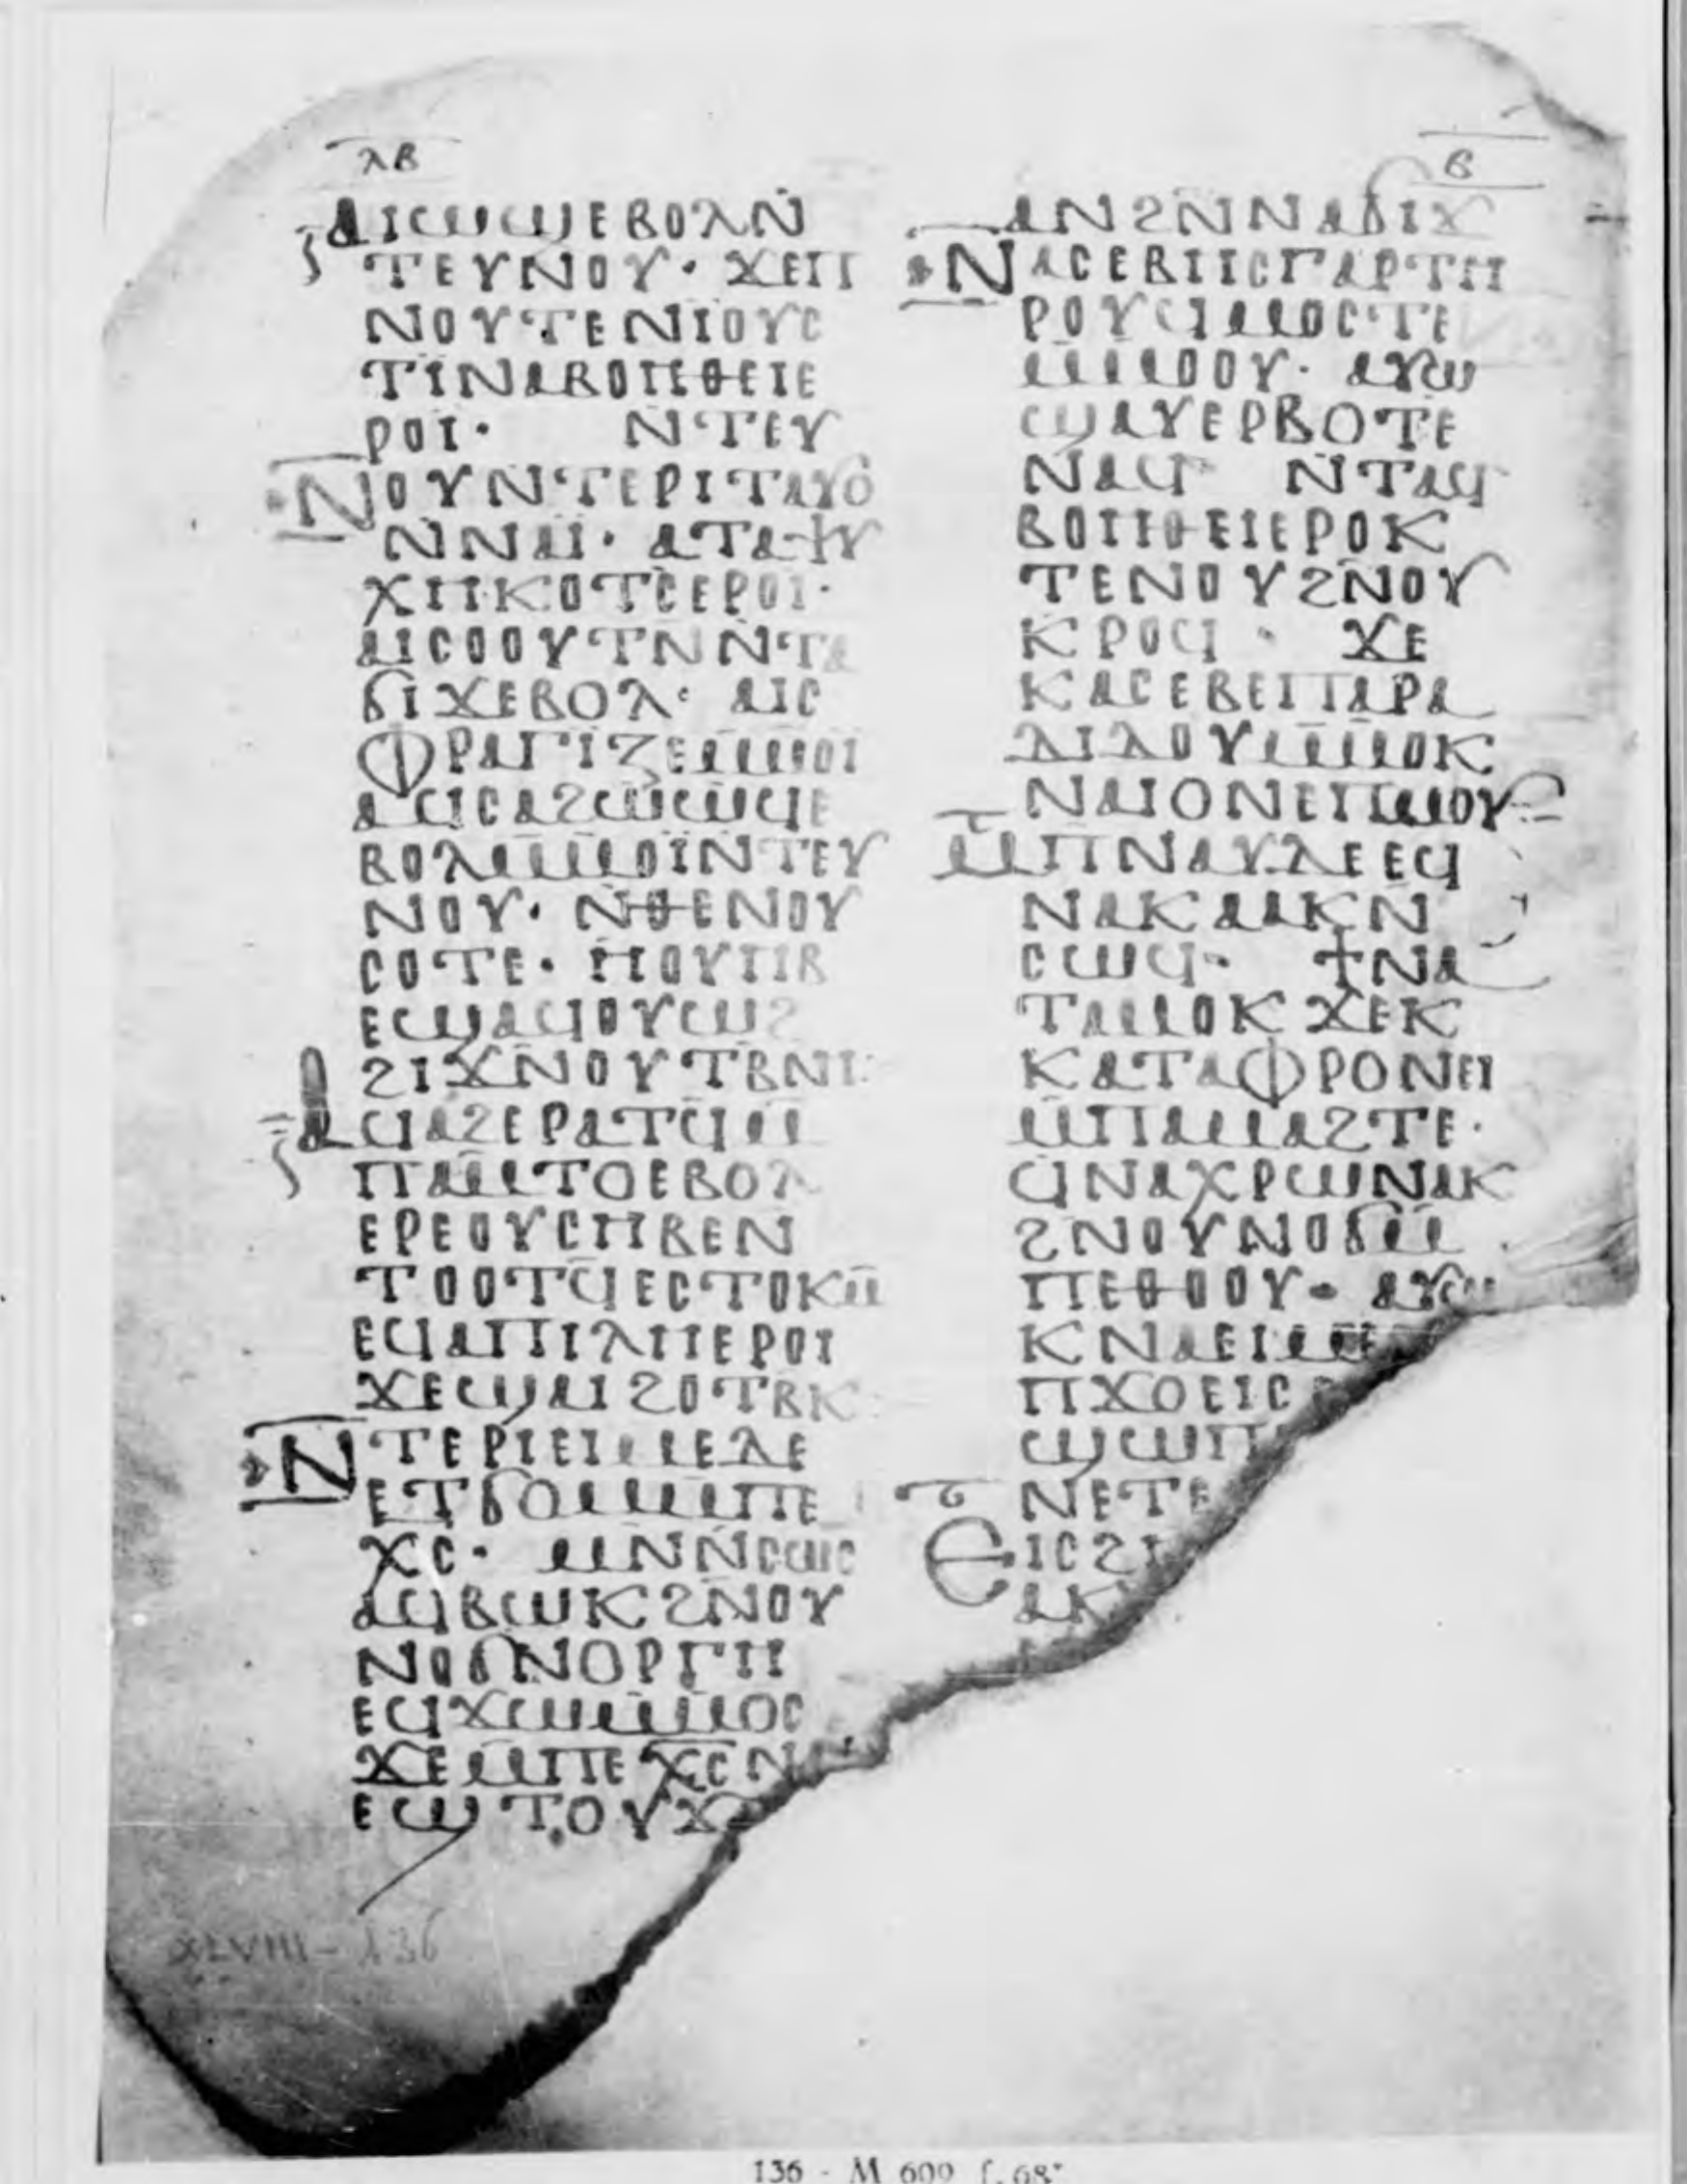 ⲗⲃ
ⲃ
ⲁⲓⲱϣⲉⲃⲟⲗⲛ̄
ⲧⲉⲩⲛⲟⲩ· ϫⲉⲡ
ⲛⲟⲩⲧⲉⲛⲓⲟⲩⲥ
ⲧⲓⲛⲁⲃⲟⲏⲑⲉⲓⲉ
ⲣⲟⲓ· ⲛ̄ⲧⲉⲩ
ⲛⲟⲩⲛⲧⲉⲣⲓⲧⲁⲩⲟ
ⲛ̄ⲛⲁⲓ· ⲁⲧⲁⲯⲩ
ⲭⲏⲕⲟⲧⲥⲉⲣⲟⲓ·
ⲁⲓⲥⲟⲟⲩⲧⲛⲛ̄ⲧⲁ
ϭⲓϫⲉⲃⲟⲗ· ⲁⲓⲥ
ⲫⲣⲁⲅⲓⲍⲉⲙ̄ⲙⲟⲓ
ⲁϥⲥⲁϩⲱⲱϥⲉ
ⲃⲟⲗⲙ̄ⲙⲟⲓ̈ⲛ̄ⲧⲉⲩ
ⲛⲟⲩ· ⲛ̄ⲑⲉⲛⲟⲩ
ⲥⲟⲧⲉ· ⲏⲟⲩⲡⲃ
ⲉϣⲁϥⲟⲩⲱϩ
ϩⲓϫⲛⲟⲩⲧⲃⲛⲓ·
ⲁϥⲁϩⲉⲣⲁⲧϥⲙ̄
ⲡⲁⲙⲧⲟⲉⲃⲟⲗ
ⲉⲣⲉⲟⲩⲥⲏⲃⲉⲛ
ⲧⲟⲟⲧϥⲉⲥⲧⲟⲕⲙ̄
ⲉϥⲁⲡⲓⲗⲏⲉⲣⲟⲓ
ϫⲉϣⲁⲓϩⲟⲧⲃⲕ
ⲛⲧⲉⲣⲓⲉⲓⲙⲉⲇⲉ
ⲉⲧϭⲟⲙⲙ̄ⲡⲉ
ⲭ̄ⲥ̄· ⲙⲛⲛ̄ⲥⲱⲥ
ⲁϥⲃⲱⲕϩⲛⲟⲩ
ⲛⲟϭⲛⲟⲣⲅⲏ
ⲉϥϫⲱⲙ̄ⲙⲟⲥ
ϫⲉⲙ̄ⲡⲉⲭ̄ⲥ̄ⲛⲁ
ⲉϣⲧⲟⲩϫ
ⲁⲛϩⲛ̄ⲛⲁϭⲓϫ
ⲛⲁⲥⲉⲃⲏⲥⲅⲁⲣⲧⲏ
ⲣⲟⲩϥⲙⲟⲥⲧⲉ
ⲙ̄ⲙⲟⲟⲩ· ⲁⲩⲱ
ϣⲁⲩⲉⲣⲃⲟⲧⲉ
ⲛⲁϥ ⲛ̄ⲧⲁϥ
ⲃⲟⲏⲑⲉⲓⲉⲣⲟⲕ
ⲧⲉⲛⲟⲩϩⲛⲟⲩ
ⲕⲣⲟϥ· ϫⲉ
ⲕⲁⲥⲉⲃⲉⲓⲡⲁⲣⲁ
ⲇⲓⲇⲟⲩⲙ̄ⲙⲟⲕ
ⲛⲁⲓⲟⲛⲉⲡⲙⲟⲩ
ⲙ̄ⲡⲛⲁⲩⲇⲉⲉϥ
ⲛⲁⲕⲁⲁⲕⲛ̄
ⲥⲱϥ· ϯⲛⲁ
ⲧⲁⲙⲟⲕϫⲉⲕ
ⲕⲁⲧⲁⲫⲣⲟⲛⲉⲓ
ⲙ̄ⲡⲁⲙⲁϩⲧⲉ·
ϥⲛⲁⲭⲣⲱⲛⲁⲕ
ϩⲛⲟⲩⲛⲟϭⲙ̄
ⲡⲉⲑⲟⲟⲩ· ⲁⲩⲱ
ⲕⲛⲁⲉⲓⲙⲉ
ⲡϫⲟⲉⲓⲥ
ϣⲱⲡ
ⲛⲉⲧⲉ
ⲉⲓⲥϩⲓ
ⲁⲕ
XLVIII - 136
136 - M 609 f. 68ᵛ